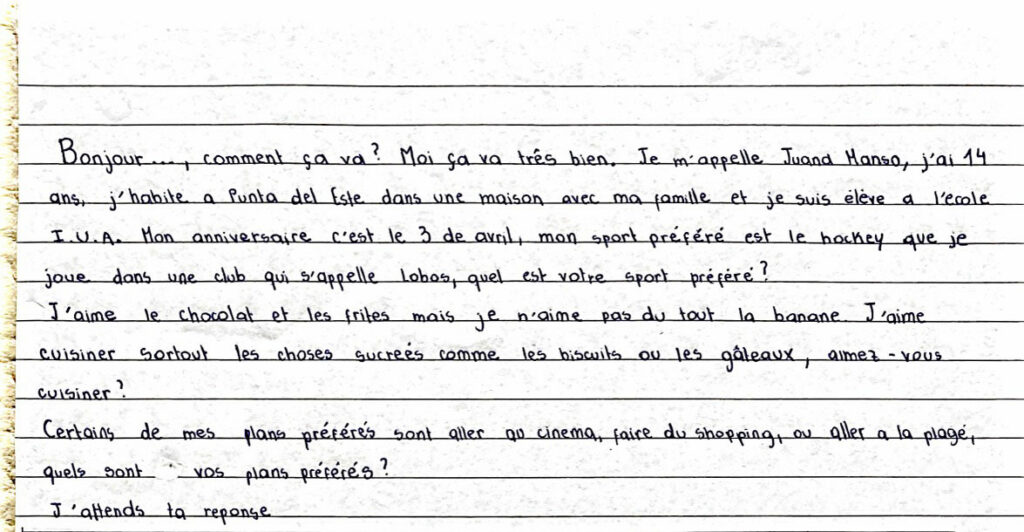 Bonjour...., comment ça va? Moi ça va trés bien. Je m'appelle Juand Manso, j'ai 14
ans, j'habite a Punta del Este dans une maison avec ma famille et je suis élève a l'école
I.U.A. Mon anniversaire c'est le 3 de avril, mon sport préféré est le hockey que je
joue dans une club qui s'appelle Lobos, quel est votre sport préféré?
J'aime le chocolat et les frites mais je n'aime pas du tout la banane. J'aime
cuisiner sortout les choses sucreés comme les biscuits ou les gâteaux, aimez-vous
cuisiner?
Certains de mes plans préférés sont aller au cinema, faire du shopping, ou aller a la plage,
quels sont vos plans préférés?
J'attends ta reponse